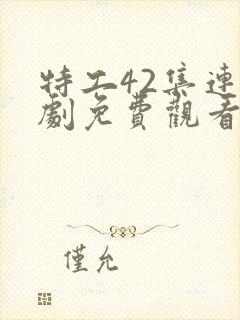 特工42集連
劇免費觀看
僅允